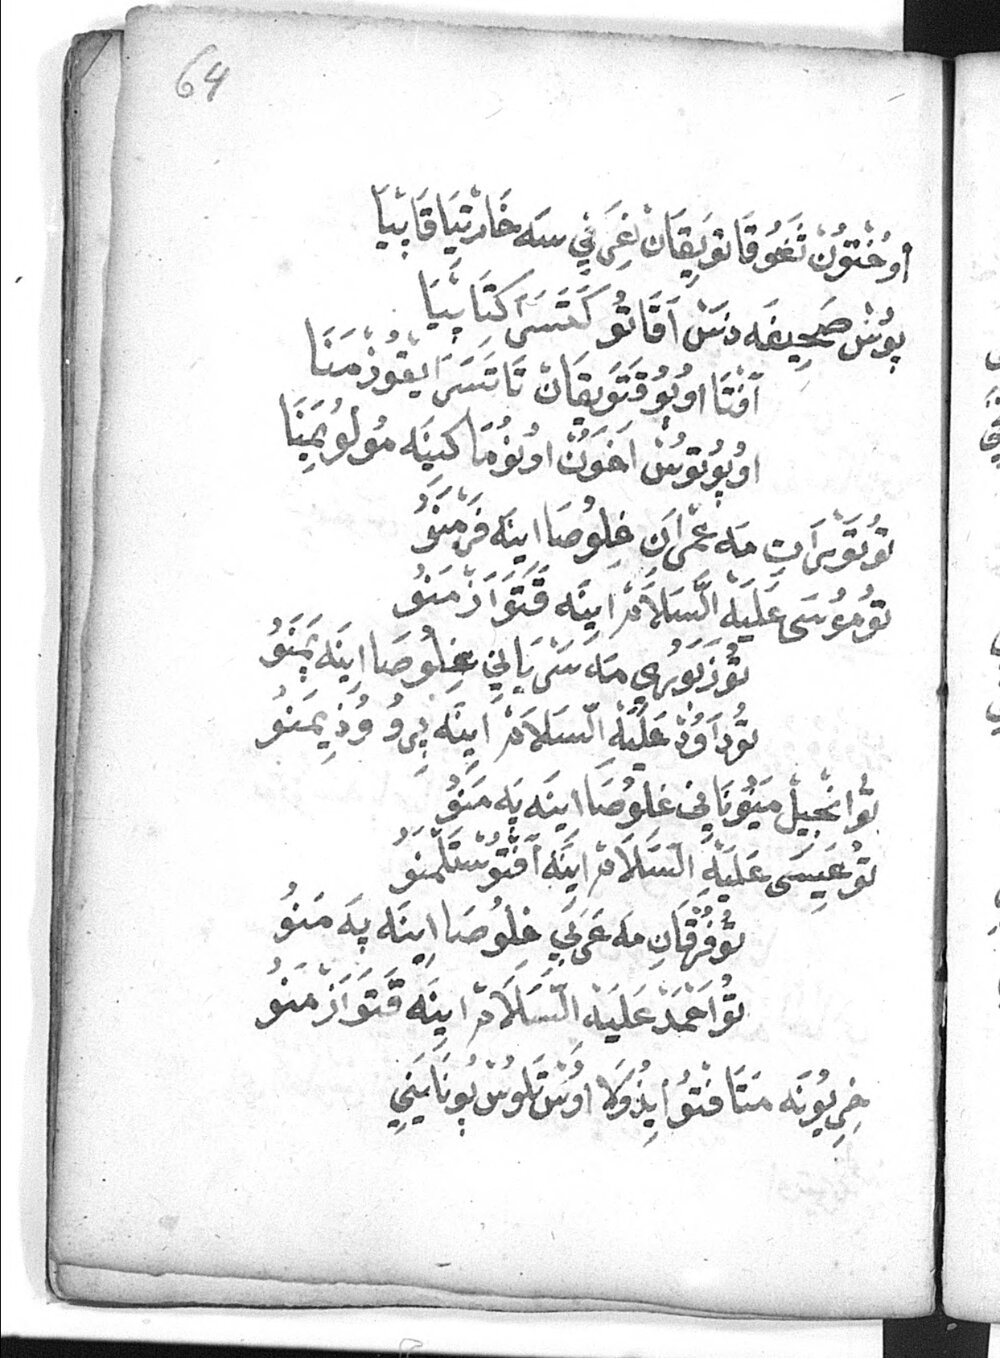 64
اوُخْتُونْ تَغُوقَاتوَيِقَانْ غِرَفِي سَه خَارْتِيَا قَاپْيَا
پوُسْ صَحِيفَه دنَسْ اَقَاتُو كَتَسَىَ كتَاپْيَا
آفْتَا اوُپُوُقَتَوَيِقَانْ تَاتَسَرَا يقوُذْمَنَا
اوُپوُتوُسْ اَخَوُنْ اوُنوُمَا كىيَه مُولوُيمَنَا
توُتَوْرَاتِ مَه عَمْرَانِ غِلوُصَا اينَه فَرْمَنَوُ
توُموُسَى عَلَيَهْ اَلَّسَلاَمْ اينَه قَتَوَازْمَنوُ
توُزَبَوُرِي مَه سَرْيَانِي غِلوُصَا اينَه پَمَنَوُ
توُدَاوُدْ عَلَيَهْ اَلسَلاَمْ اينَه پِروُ وُذِيمَنوُ
توُانْجِيلْ مَيوُنَانِى غِلوُصَا اينَه پَه مَنوُ
توُعِيسَى عَلَيَهِ اَلسَلَامْ اينَه اَفْتوُسْتَلْمَنوُ
توُفُرْقَانِ مَه عَرَبِي غِلوُصَا اينَه پَه مَنوُ
توُاَحْمَدْ عَلَيَهْ اَلَّسَلَامْ اينَه قَتَوَازْمَنوُ
خِرِيوُنَه مَتَافْتوُ ايذِوُلَا اوُسْ تَلوُسْ پوُنَا يَنِي